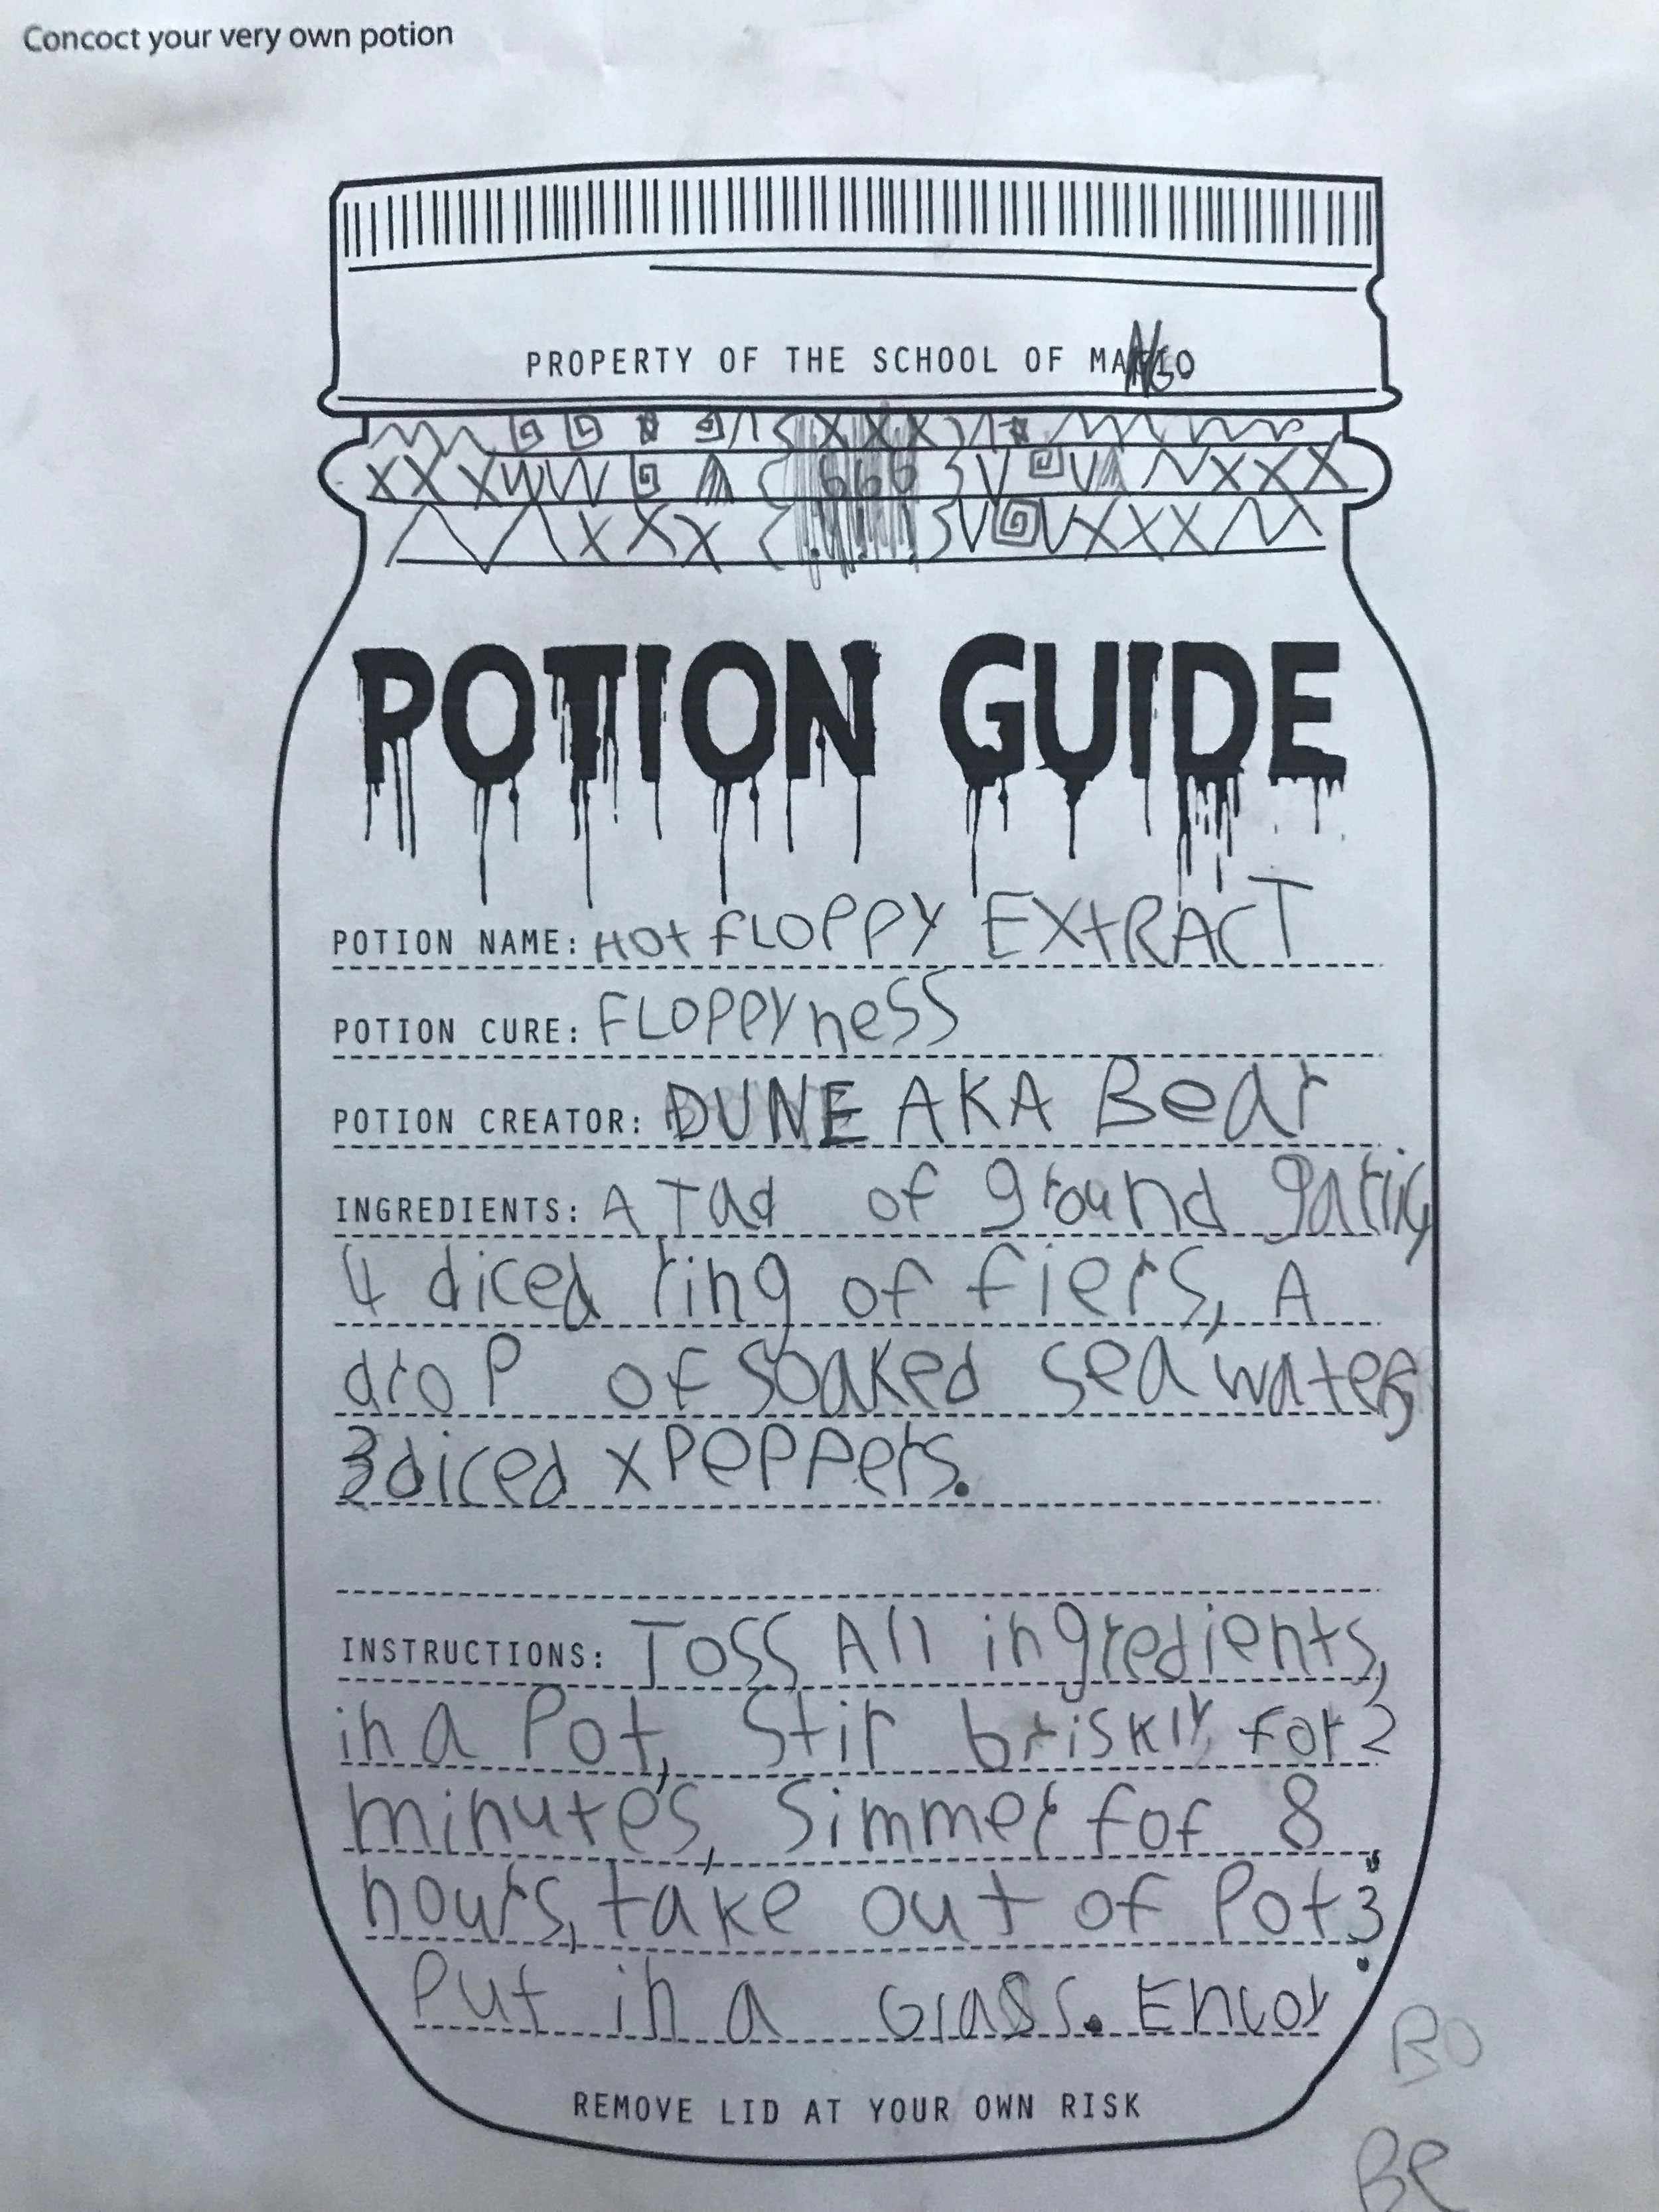 Concoct your very own potion
PROPERTY OF THE SCHOOL OF MANGO
XXX
XXX 666 XXX
XXX XXX
POTION GUIDE
POTION NAME: HOt fLOPPY EXtRACT
POTION CURE: FLOPPYneSS
POTION CREATOR: DUNE AKA Bear
INGREDIENTS: A Tad of ground garlic,
4 diced ring of fiers, A
droP of soaked sea water,
3 diced x PePPers.
INSTRUCTIONS: Toss All ingredients,
in a Pot, Stir briskly, for 2
minutes, Simmer for 8
hours, take out of Pot;
Put in a Glass.
REMOVE LID AT YOUR OWN RISK
BO
Be